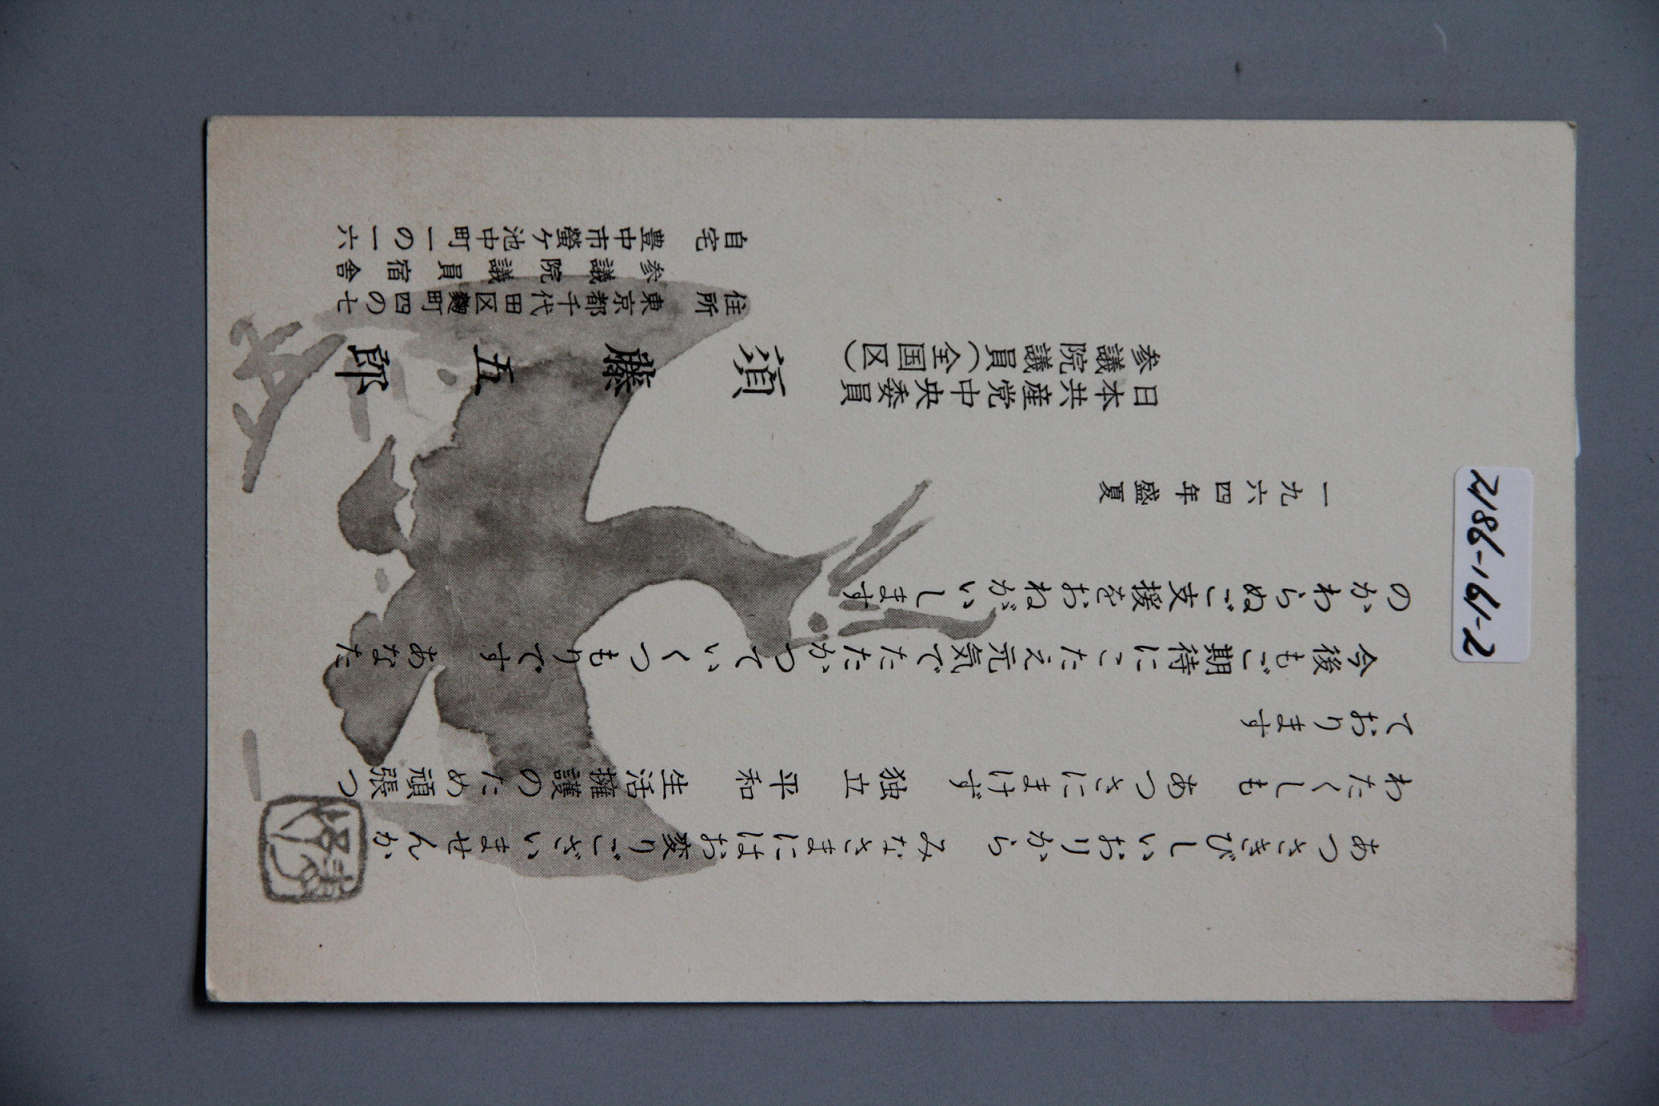 あつさきびしいおりから　みなさまにはお変りございませんか
わたくしも　あつさにまけず　独立　平和　生活擁護のため頑張つ
ております
今後もご期待にこたえ元気でたたかつていくつもりです　あなた
のかわらぬご支援をおねがいします
一九六四年盛夏
日本共産党中央委員
参議院議員（全国区）
須藤五郎
住所　東京都千代田区麴町四の七
参議院議員宿舎
自宅　豊中市螢ケ池中町一の一六
2186-161-2